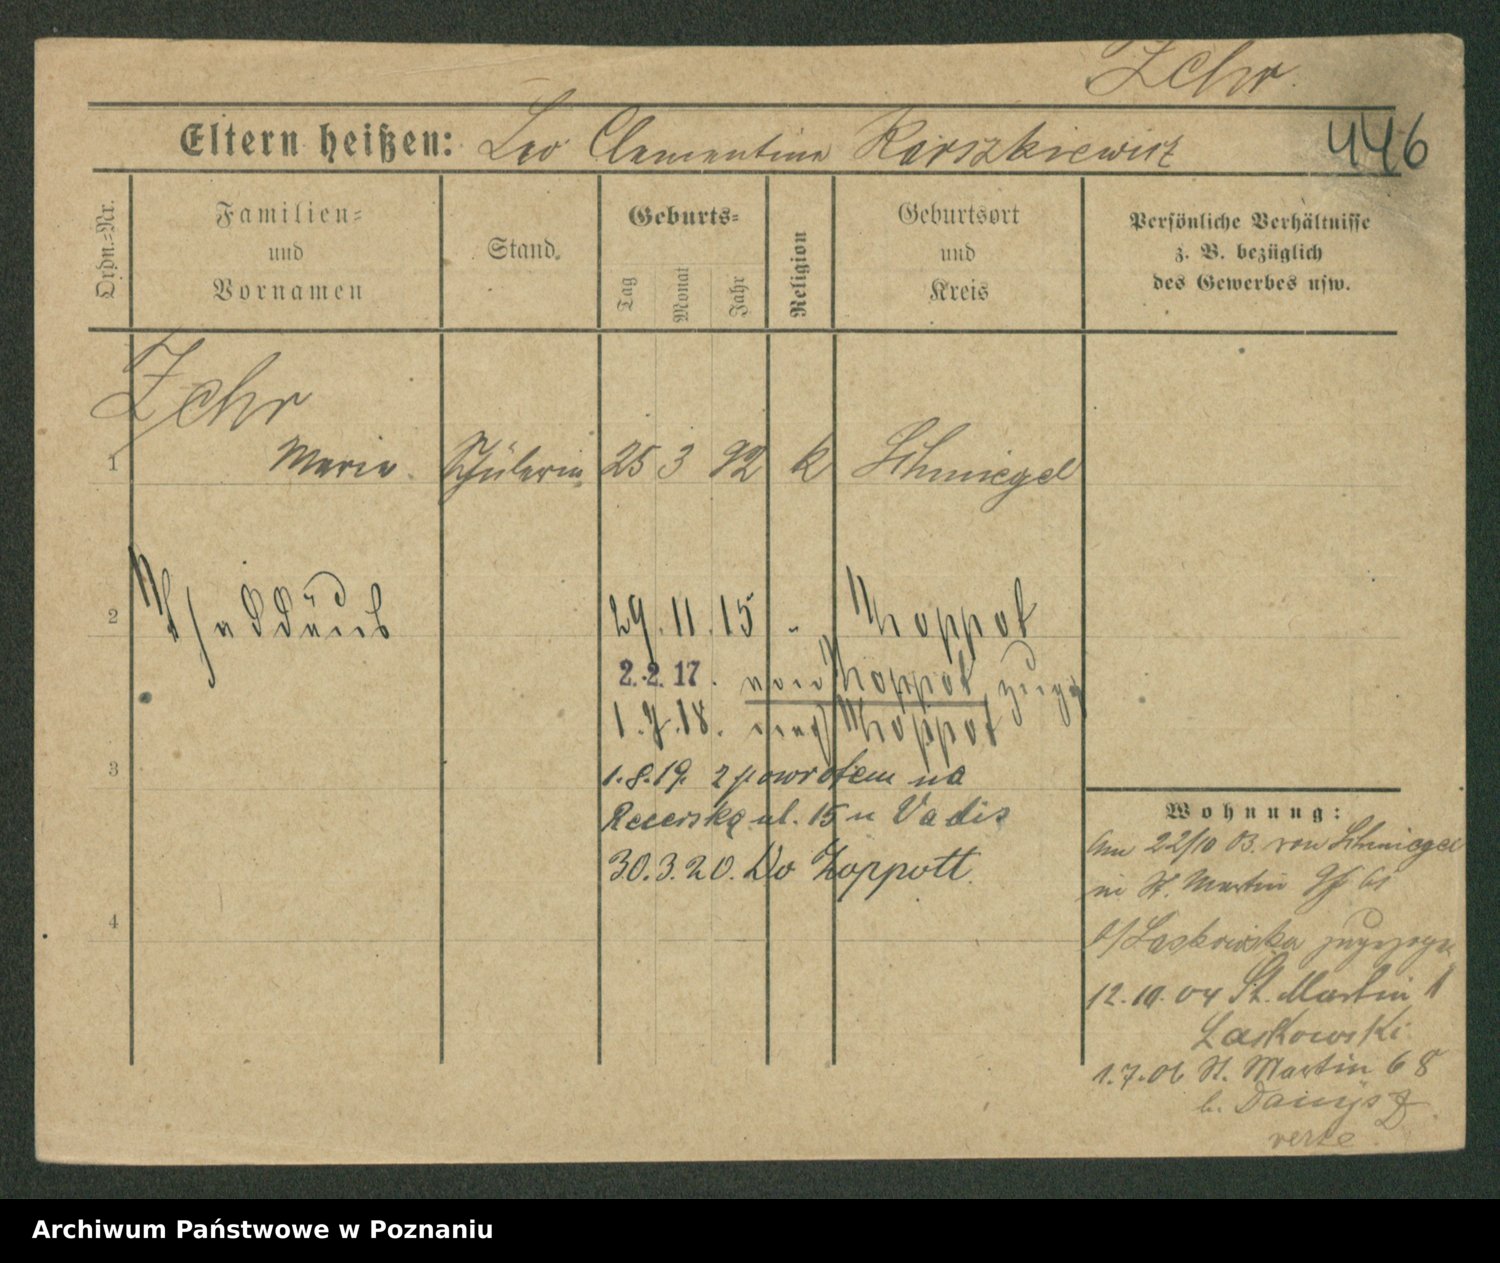 Zehr.
Eltern heißen: Leo Clementine Karszkiewicz
446
Ordn.-Nr.
Familien-
und
Vornamen
Stand.
Geburts-
Tag
Monat
Jahr
Religion
Geburtsort
und
Kreis
Persönliche Verhältnisse
z. B. bezüglich
des Gewerbes usw.
Zehr
1 Marie. Schülerin 25 3 92 k Schmiegel
2 Thaddäus 29. 11. 15 " Zoppot
2.2.17. von Zoppot, zugz
1.7.18. nach Zoppot
3
1.8.19. z powrotem na
ul. 15 u Vadis
30.3.20. Do Zoppott.
4
Wohnung:
Am 22/10 03. von Schmiegel
in St. Martin 61
b/Laskowska zugezogen
12.10.04 St. Martin 1
Laskowski
1.7.06 St. Martin 68
b. Danysz
verte.
Archiwum Państwowe w Poznaniu